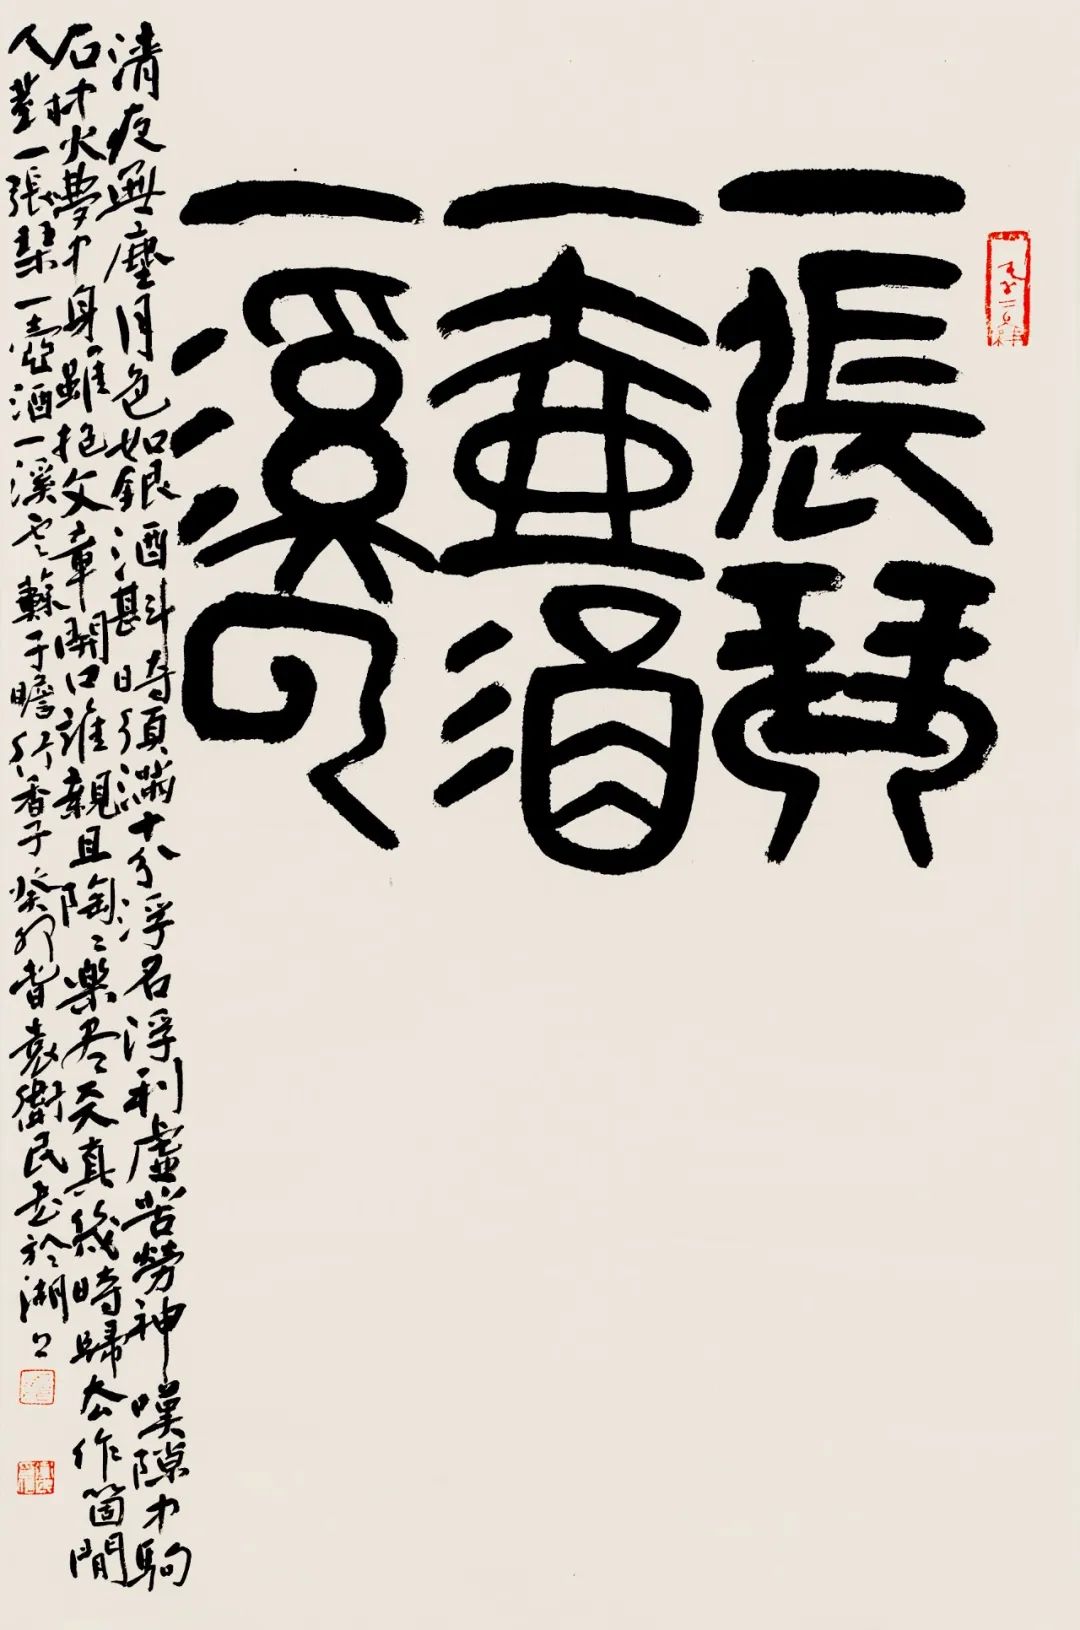 一張琴
一壺酒
一溪雲
清夜無塵月色如銀酒斟時須滿十分浮名浮利虛苦勞神嘆隙中駒
石中火夢中身雖抱文章開口誰親且陶〻樂盡天真幾時歸去作箇閒
人對一張琴一壺酒一溪雲蘇子瞻行香子癸卯春袁衛民書於湖上